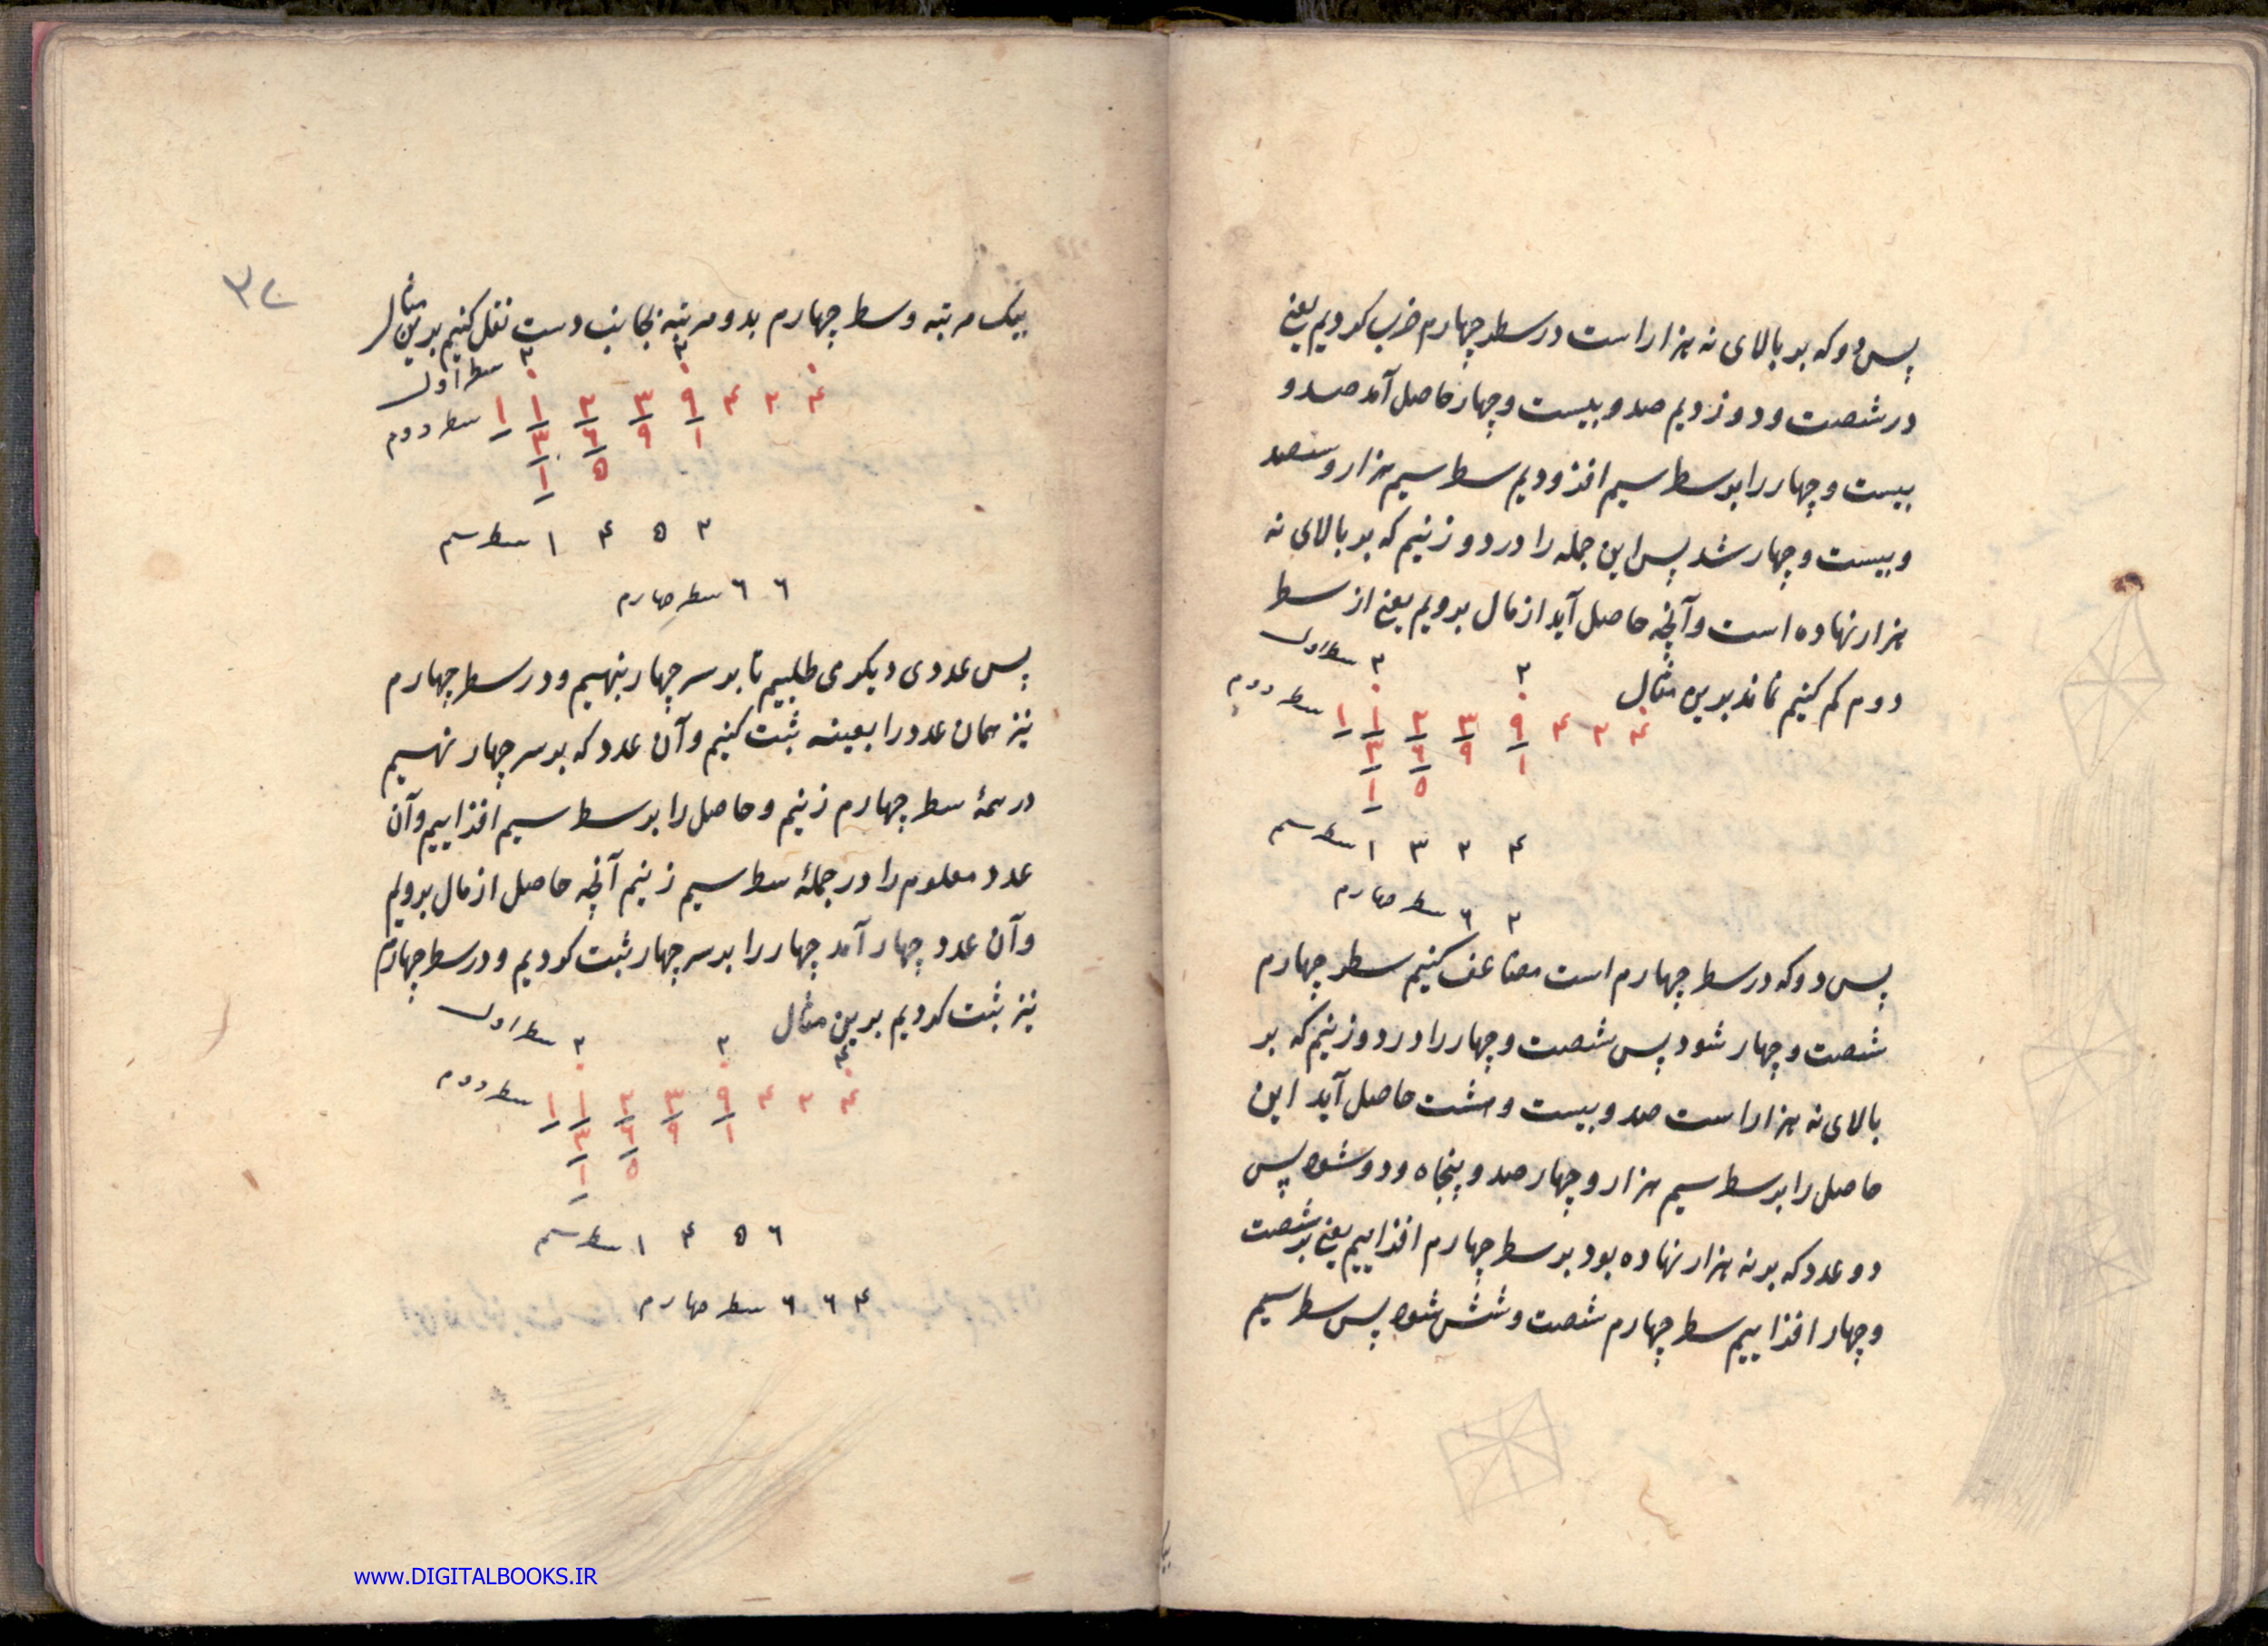 پس دو که بر بالای نه هزار است در سطر چهارم ضرب کردیم یعنی
در شصت و دو زدیم صد و بیست و چهار حاصل آمد صد و
بیست و چهار را بر سطر سیم افزودیم سطر سیم هزار و سصد
و بیست و چهار شد پس این جمله را در دو زنیم که بر بالای نه
هزار نهاده است و آنچه حاصل آید از مال برویم یعنی از سطر
دوم کم کنیم نماند برین مثال
۲ ۲ سطر اول
۱ ۱ ۲ ۳ ۹ ۴ ۲ ۴ سطر دوم
۳ ۶ ۹ ۱
۱ ۵
۱ ۳ ۲ ۴ سطر سیم
۶ ۲ سطر چهارم
پس دو که در سطر چهارم است مضاعف کنیم سطر چهارم
شصت و چهار شود پس شصت و چهار را در دو زنیم که بر
بالای نه هزار است صد و بیست و هشت حاصل آید این
حاصل را بر سطر سیم هزار و چهار صد و پنجاه و دو شود پس
دو عدد که بر نه هزار نهاده بود بر سطر چهارم افزاییم یعنی بر شصت
و چهار افزاییم سطر چهارم شصت و شش شود پس سطر سیم
بیک مرتبه و سطر چهارم بدو مرتبه بجانب دست نقل کنیم برین مثال
۲ ۲ سطر اول
۱ ۱ ۲ ۳ ۹ ۴ ۲ ۴ سطر دوم
۳ ۶ ۹ ۱
۱ ۵
۱ ۴ ۵ ۲ سطر سیم
۶ ۶ سطر چهارم
پس عددی دیگر می طلبیم تا بر سر چهار بنهیم و در سطر چهارم
نیز همان عدد را بعینه ثبت کنیم و آن عدد که بر سر چهار نهیم
در همهٔ سطر چهارم زنیم و حاصل را بر سطر سیم افزاییم و آن
عدد معلوم را در جملهٔ سطر سیم زنیم آنچه حاصل از مال برویم
و آن عدد چهار آمد چهار را بر سر چهار ثبت کردیم و در سطر چهارم
نیز ثبت کردیم برین مثال
۲ ۲ ۴ سطر اول
۱ ۱ ۲ ۳ ۹ ۴ ۲ ۴ سطر دوم
۳ ۶ ۹ ۱
۱ ۵
۱ ۴ ۵ ۶ سطر سیم
۶ ۶ ۴ سطر چهارم
www.DIGITALBOOKS.IR